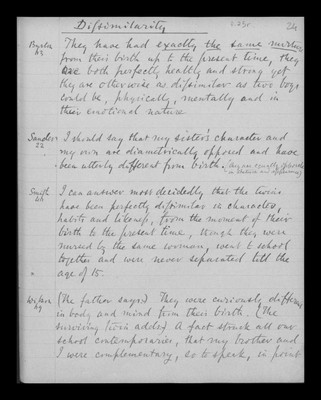 Dissimilarity
24
They have had exactly the same nurture
from their birth up to the present time, they
are both perfectly healthy and strong yet
they are otherwise as dissimilar as two boys
could be, physically, mentally and in
their emotional nature
Sanders I should say that my sister's character and
22 my own are diametrically opposed and have
been utterly different from birth.
Smith I can answer most decidedly that the twins
have been perfectly dissimilar in character,
habits and likeness, from the moment of their
birth to the present time, though they were
nursed by the same woman, went to school
together and were never separated till the
age of 15.
(The father says) They were curiously different
in body and mind from their birth. (The
surviving twin adds) A fact struck all our
school contemporaries, that my brother and
I were complementary, so to speak, in point